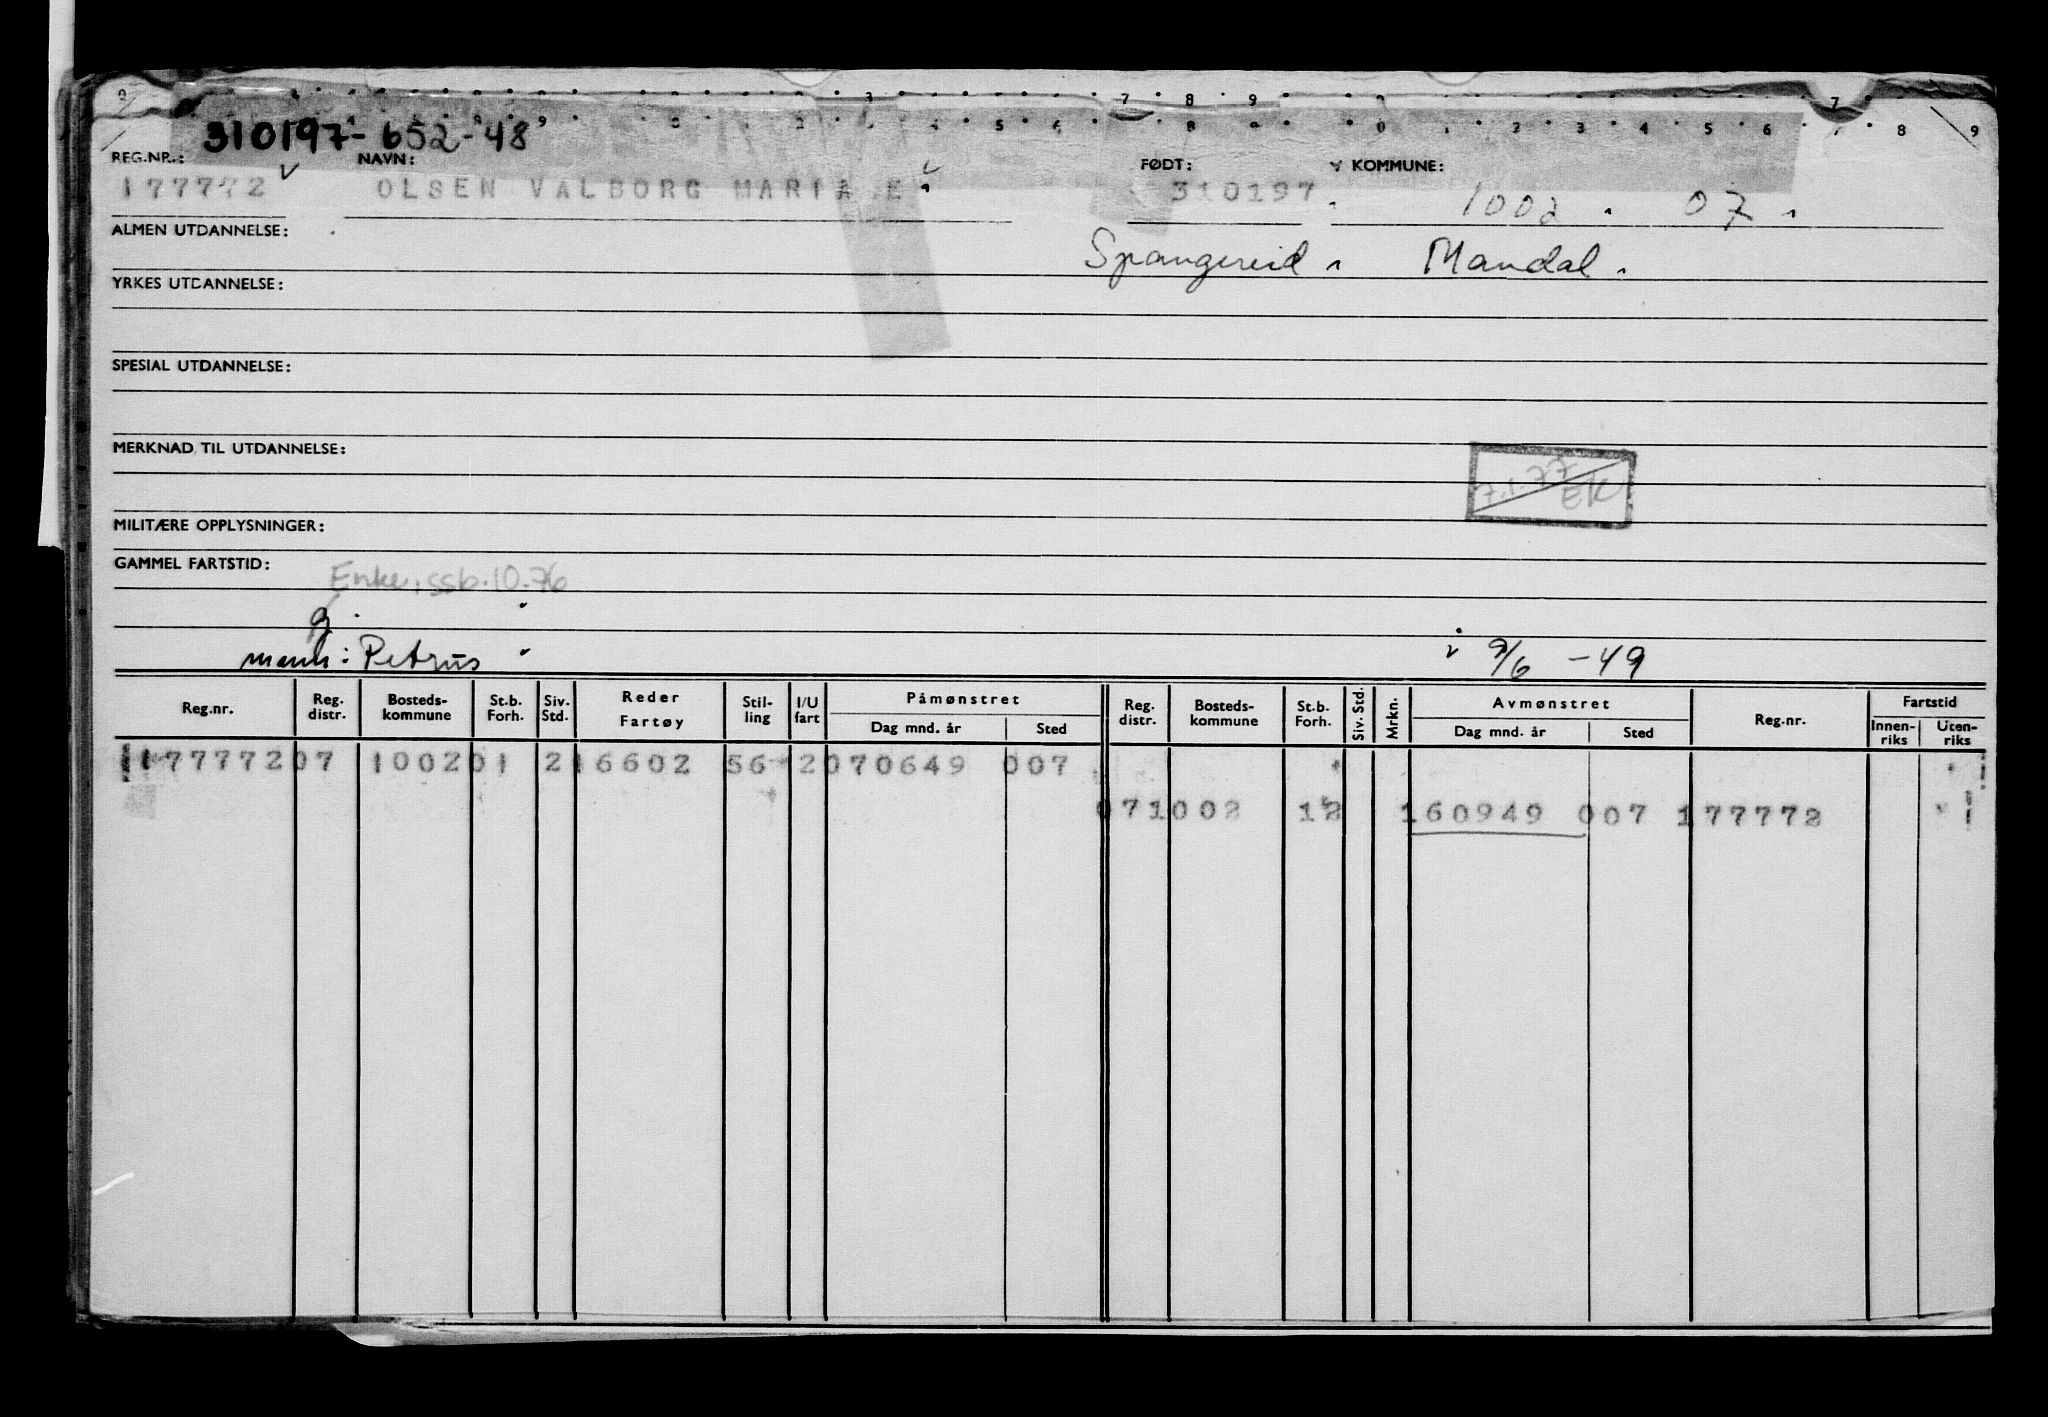 310197-652-48
REG.NR.: NAVN: FØDT: KOMMUNE:
177772 OLSEN VALBORG MARIA E 310197 1002 07
ALMEN UTDANNELSE: Spangereid Mandal
YRKES UTDANNELSE:
SPESIAL UTDANNELSE:
MERKNAD TIL UTDANNELSE:
7.1.77 EK
MILITÆRE OPPLYSNINGER:
GAMMEL FARTSTID:
Enke, ssb.10.76
g.
mann: Petrus i 9/6 -49
Reg.nr. Reg. distr. Bosteds-kommune St.b. Forh. Siv. Std. Reder Fartøy Stil-ling I/U fart Påmønstret Dag mnd. år Sted Reg. distr. Bosteds-kommune St.b. Forh. Siv. Std. Mrkn. Avmønstret Dag mnd. år Sted Reg.nr. Fartstid Innen-riks Uten-riks
177772 07 1002 01 2 16602 56 2 070649 007
071002 12 160949 007 177772